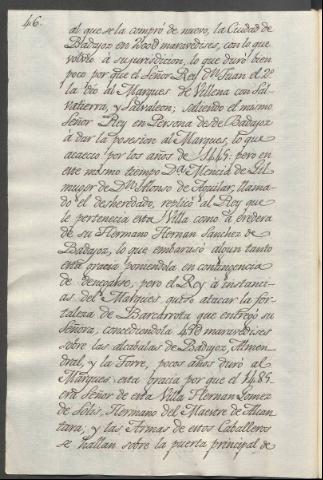 46.
al que se la compró de nuevo, la Ciudad de
Badajoz en 200[?] maravedises, con lo que
volvió à su jurisdiccion, lo que duró bien
poco por que el Señor Rey Dn. Juan el 2º.
la dio al Marques de Villena con Sal-
vatierra, y Salvaleon; saliendo el mismo
Señor Rey en Persona desde Badajoz
à dar la posesion al Marques, lo que
acaecio por los años de 1445: pero en
este mismo tiempo Dª. Mencia de
muger de Dn. Alonso de Aguilar, llama-
do el desheredado, replicó al Rey que
le pertenecia esta Villa como à eredera
de su Hermano Hernan Sanchez de
Badajoz, lo que embarasó algun tanto
esta gracia poniendola en contingencia
de denegarse, pero el Rey à instanci-
as del Marques, quiso atacar la for-
taleza de Barcarrota que entregó su
Señora, concediendola maravedises
sobre las alcabalas de Badajoz, Almen-
dral, y la Torre, pocos años duró al
Marques esta Gracia por que el 1485.
era Señor de esta Villa Hernan Gomez
de Solis, Hermano del Maestre de Alcan-
tara; y las Armas de estos Caballeros
se hallan sobre la puerta principal de